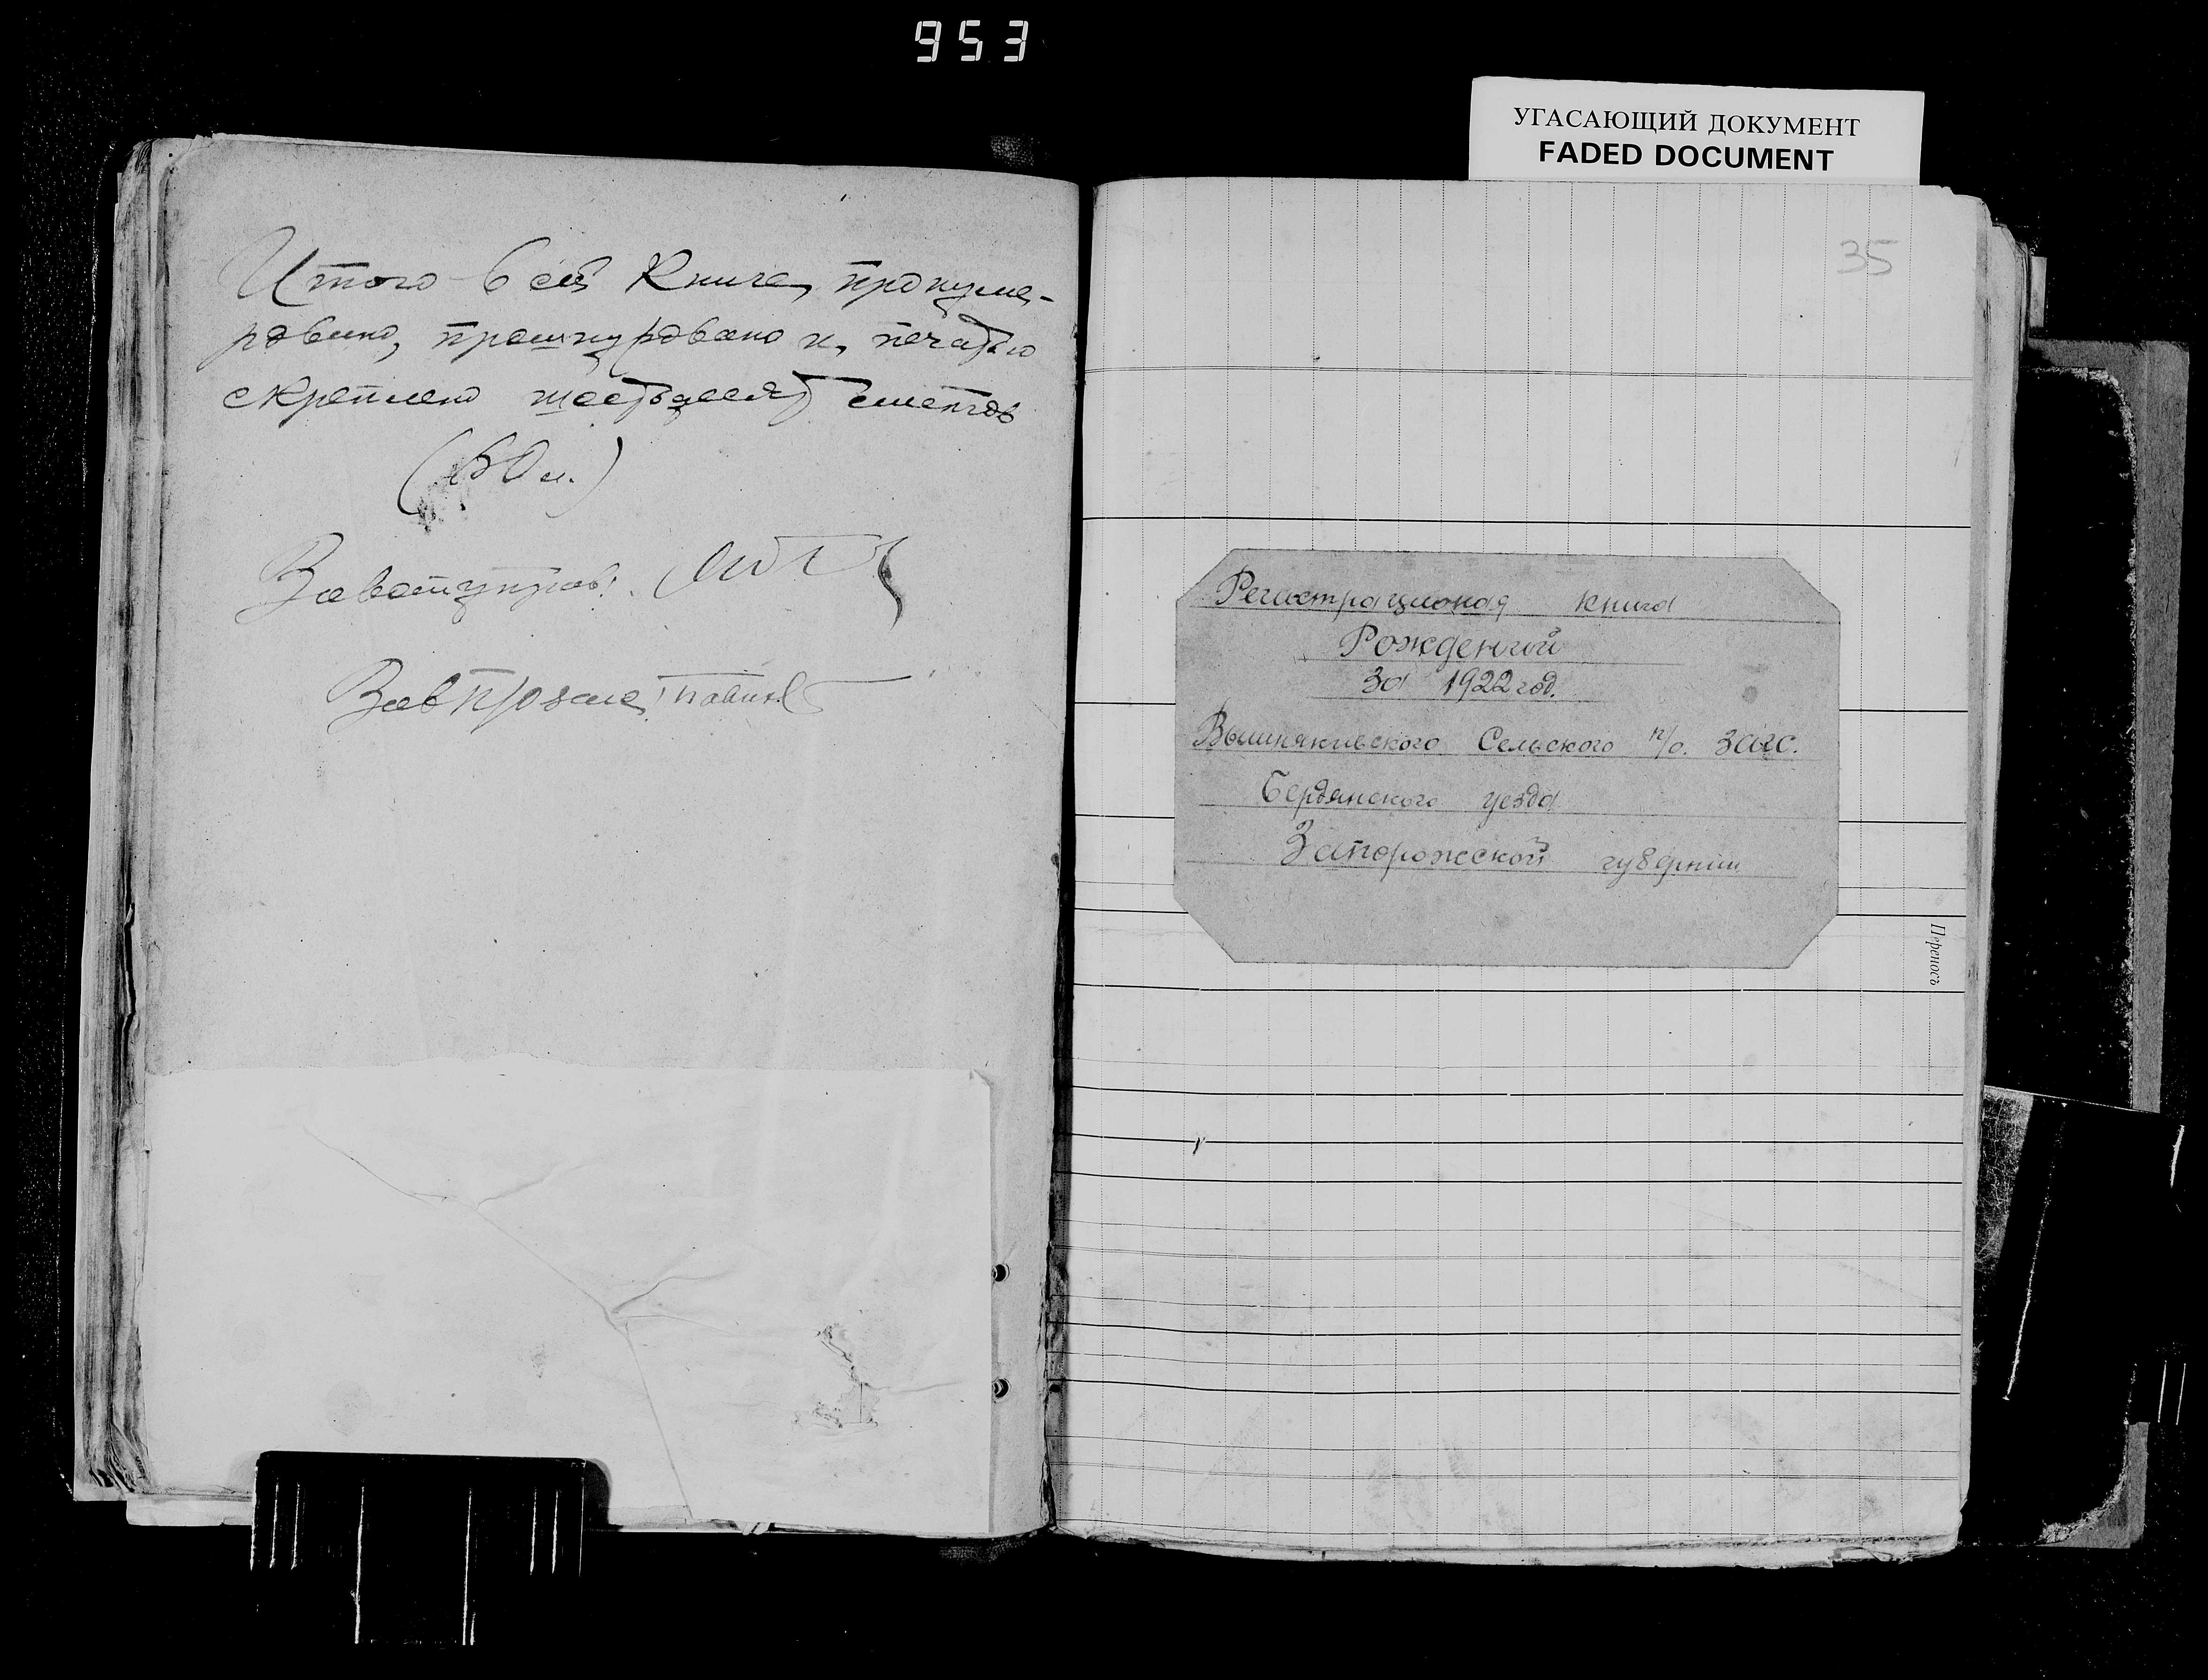 953
УГАСАЮЩИЙ ДОКУМЕНТ
FADED DOCUMENT
Итого в сей Книге, пронуме-
ровано, прошнуровано и, печатью
скреплено шестьдесят листов
(60 л.)
35
Регистрационая книга
Рождений
За 1922 год.
Вышнякивского Сельского п/о. Загс.
Бердянского уезда
Запорожской губернии
Переносъ